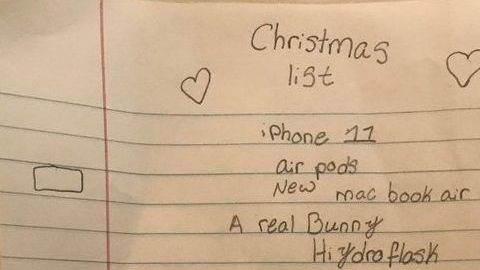 Christmas
list
iPhone 11
air pods
New mac book air
A real Bunny
Hiydroflask